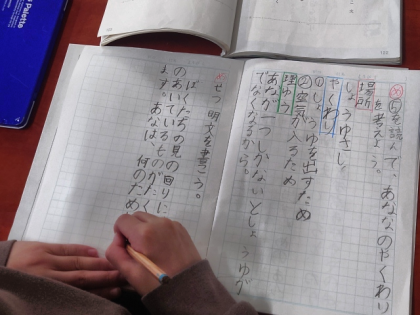 ㋱⑤を読んで、あなのやくわり
を考えよう。
場所
しょうゆさし
やくわり
①しょうゆを出すため
②空気が入るため
理ゆう
あなが一つしかないとしょうゆが
でなくなるから。
㋱せつ明文を書こう。
ぼくたちの見の回りに
のあいているものがたく
ます。あなは、何のため
Palette